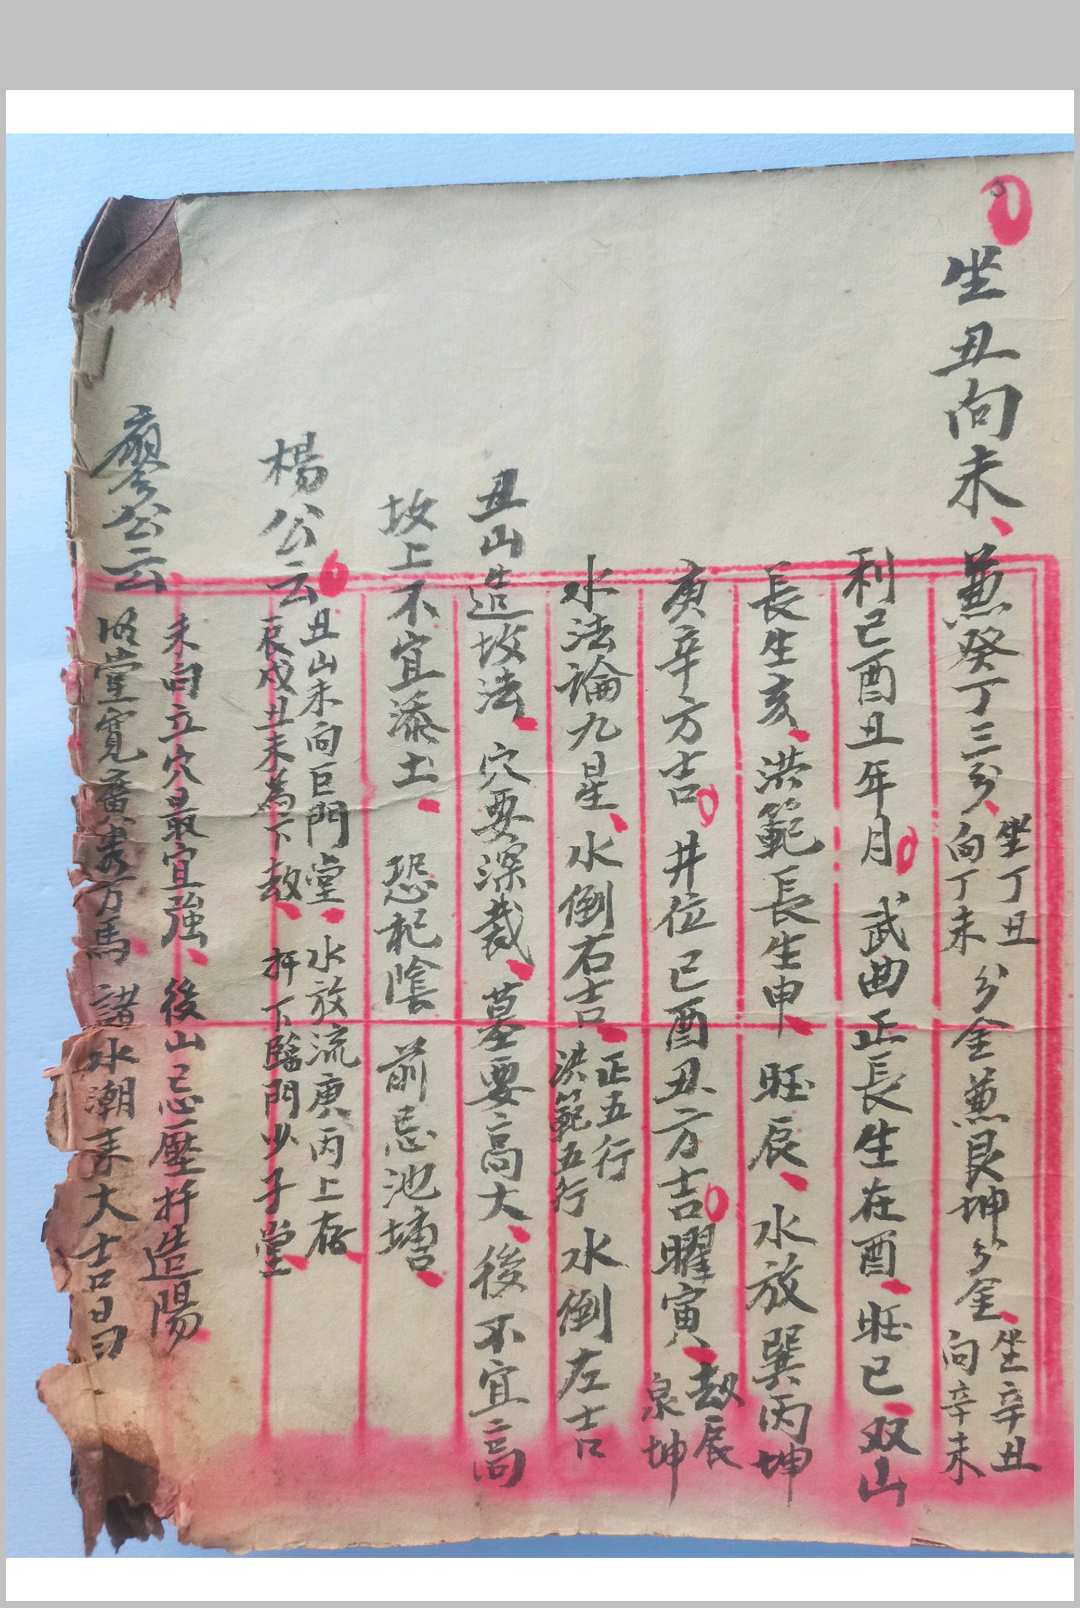 坐丑向未、兼癸丁三分、坐丁丑向丁未分金兼艮坤分金、坐辛丑向辛未
利巳酉丑年月 武曲正長生在酉、旺巳、双山
長生亥、洪範長生申、旺辰、水放巽丙坤
庚辛方吉 井位巳酉丑方吉曜寅、劫辰泉坤
水法論九星、水倒右吉、正五行洪範五行水倒左吉
丑山造坟法、穴要深裁、墓要高大、後不宜高
坟上不宜添土、恐杞陰 前忌池塘、
楊公云 丑山未向巨門堂、水放流庚丙上存、
辰戌丑未為下劫、扦下臨門少子堂、
廖公云 未向立穴最宜強、後山忌壓扦造陽、
明堂寬廣 萬馬、諸水潮来大吉昌